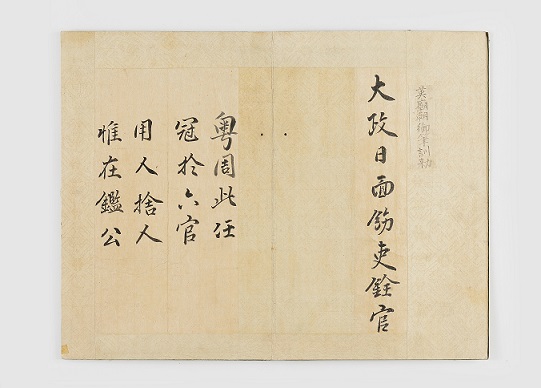 英廟朝御筆訓勅
大政日面飭吏銓官
粤周此任
冠於六官
用人捨人
惟在鑑公